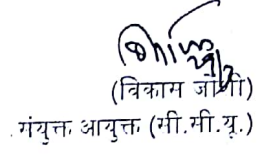 (विकास जोशी)
संयुक्त आयुक्त (सी.सी.यू.)